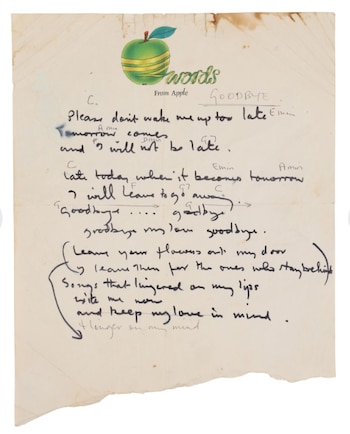 words
From Apple
GOODBYE.
C. Emin
Please don't wake me up too late
Tomorrow comes
and I will not be late.
C Emin Amin
late today when it becomes tomorrow
I will leave to go away.
G G7 C
Goodbye .... goodbye
goodbye my love goodbye.
(Leave your flowers out my door
leave them for the ones who stay behind)
Songs that lingered on my lips
excite me now
and keep my love in mind.
& linger on my mind